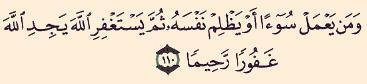 وَمَن يَعْمَلْ سُوٓءًا أَوْ يَظْلِمْ نَفْسَهُۥ ثُمَّ يَسْتَغْفِرِ ٱللَّهَ يَجِدِ ٱللَّهَ
غَفُورًا رَّحِيمًا ١١٠